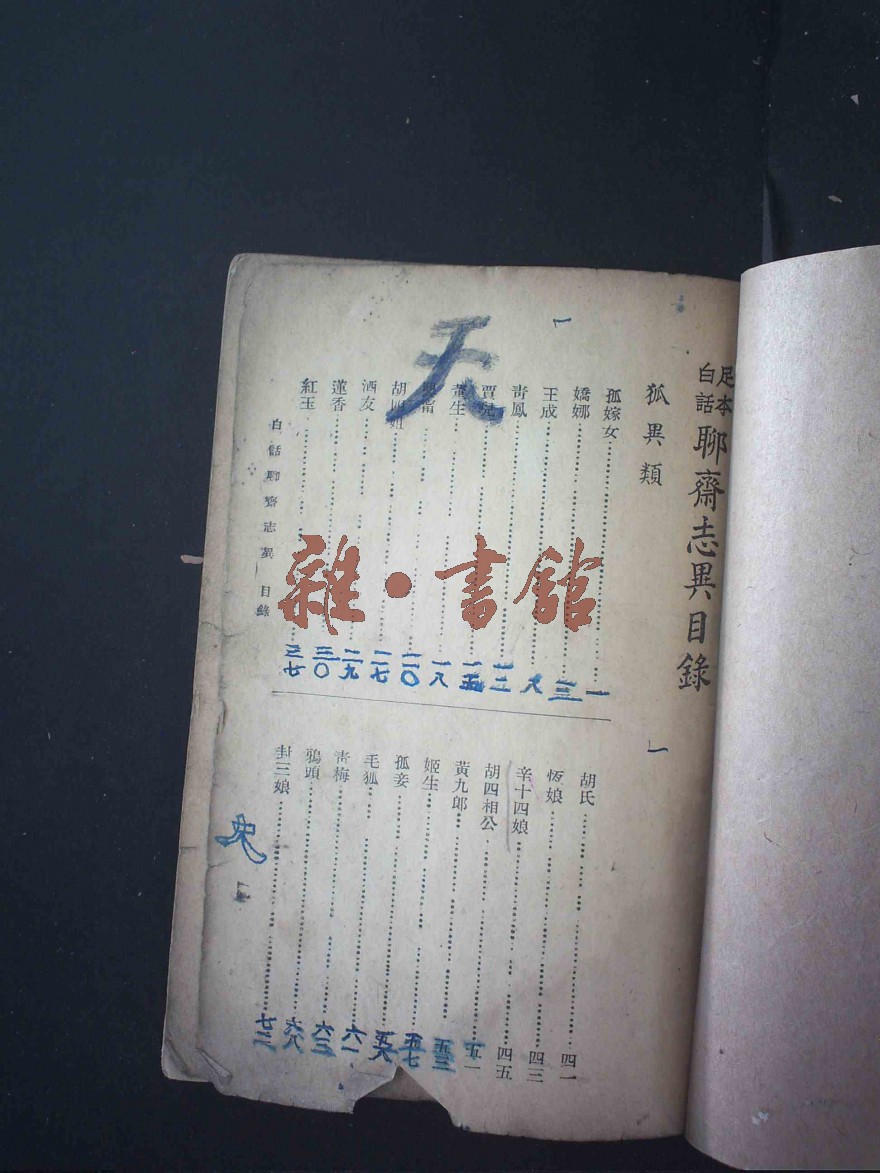 足本
白話
聊齋志異目錄
一
狐異類
狐嫁女 一
嬌娜 三
王成 八
青鳳 一二
賈兒 一五
董生 一八
二〇
胡四姐 二七
酒友 二九
蓮香 三〇
紅玉 三七
胡氏 四一
恆娘 四三
辛十四娘 四五
胡四相公 五一
黃九郎 五三
姬生 五七
狐妾 五八
毛狐 六一
青梅 六三
鴉頭 六八
封三娘 七二
白話聊齋志異 目錄
一
天
雜·書館